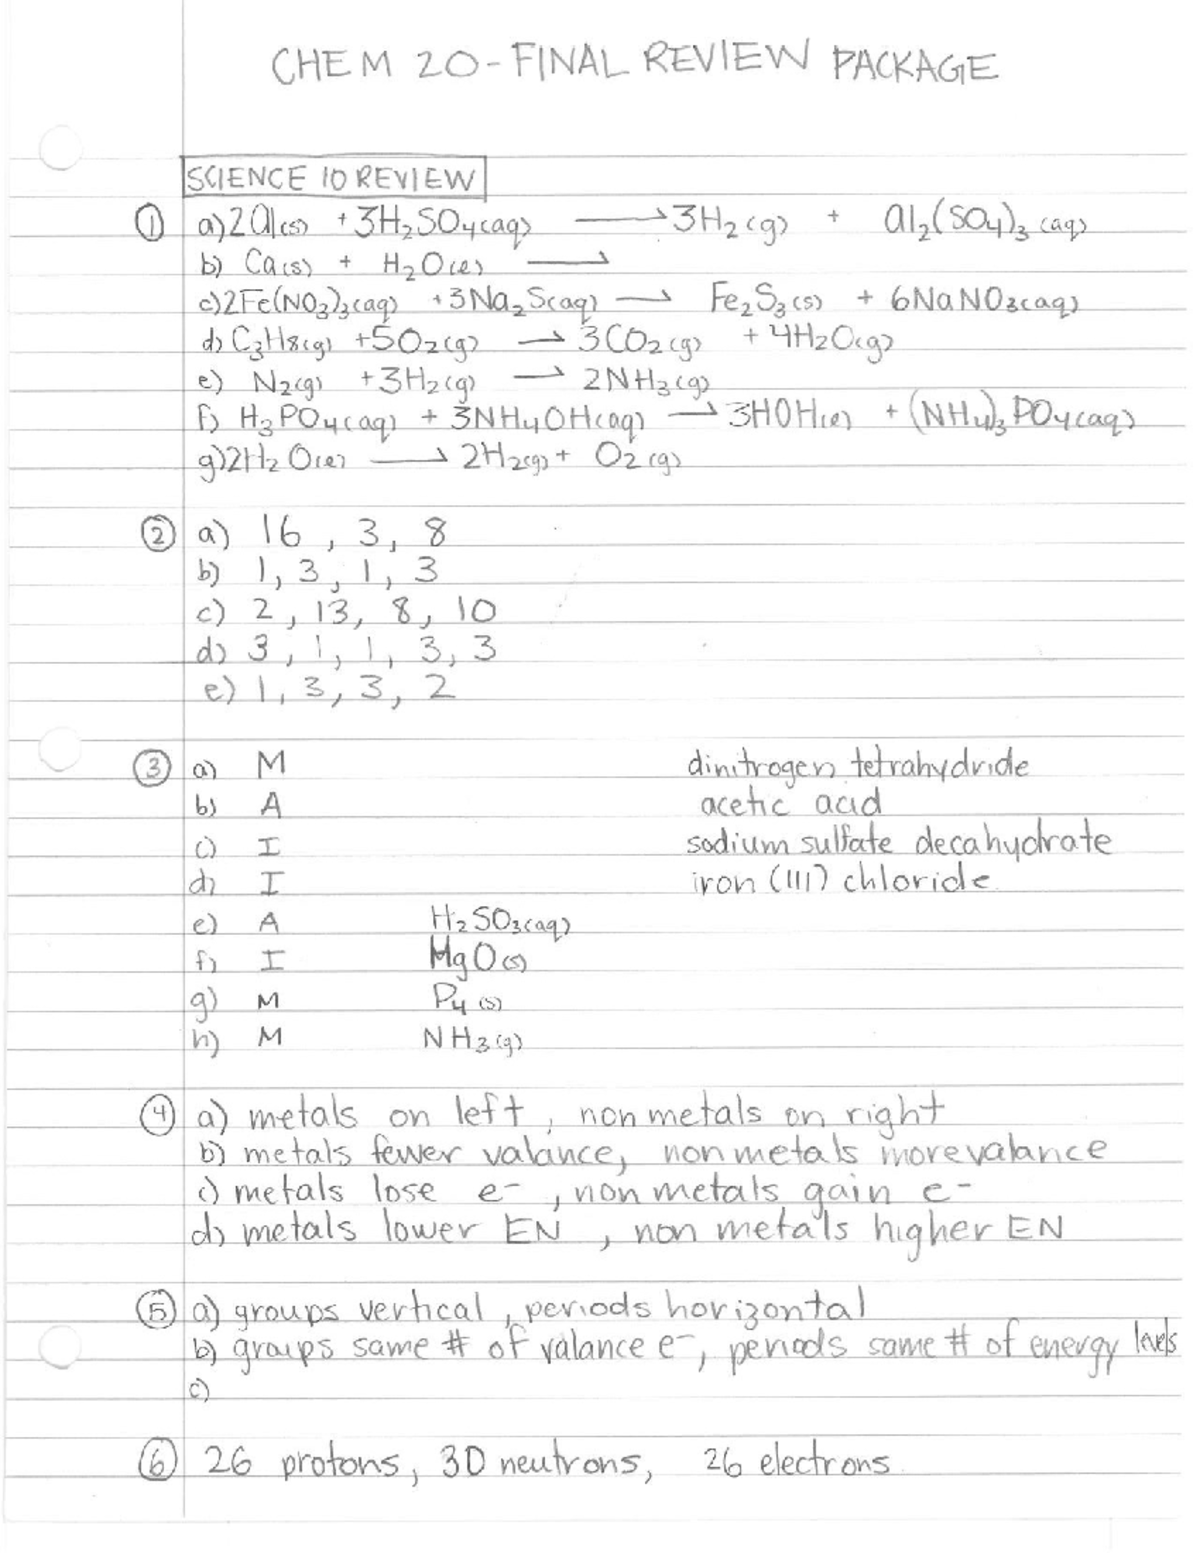 CHEM 20 - FINAL REVIEW PACKAGE
SCIENCE 10 REVIEW
① a) 2Al(s) + 3H₂SO₄(aq) → 3H₂(g) + Al₂(SO₄)₃(aq)
b) Ca(s) + H₂O(l) →
c) 2Fe(NO₃)₃(aq) + 3Na₂S(aq) → Fe₂S₃(s) + 6NaNO₃(aq)
d) C₃H₈(g) + 5O₂(g) → 3CO₂(g) + 4H₂O(g)
e) N₂(g) + 3H₂(g) → 2NH₃(g)
f) H₃PO₄(aq) + 3NH₄OH(aq) → 3HOH(l) + (NH₄)₃PO₄(aq)
g) 2H₂O(l) → 2H₂(g) + O₂(g)
② a) 16, 3, 8
b) 1, 3, 1, 3
c) 2, 13, 8, 10
d) 3, 1, 1, 3, 3
e) 1, 3, 3, 2
③ a) M dinitrogen tetrahydride
b) A acetic acid
c) I sodium sulfate decahydrate
d) I iron (III) chloride
e) A H₂SO₃(aq)
f) I MgO(s)
g) M P₄(s)
h) M NH₃(g)
④ a) metals on left, non metals on right
b) metals fewer valance, non metals more valance
c) metals lose e⁻, non metals gain e⁻
d) metals lower EN, non metals higher EN
⑤ a) groups vertical, periods horizontal
b) groups same # of valance e⁻, periods same # of energy levels
c)
⑥ 26 protons, 30 neutrons, 26 electrons